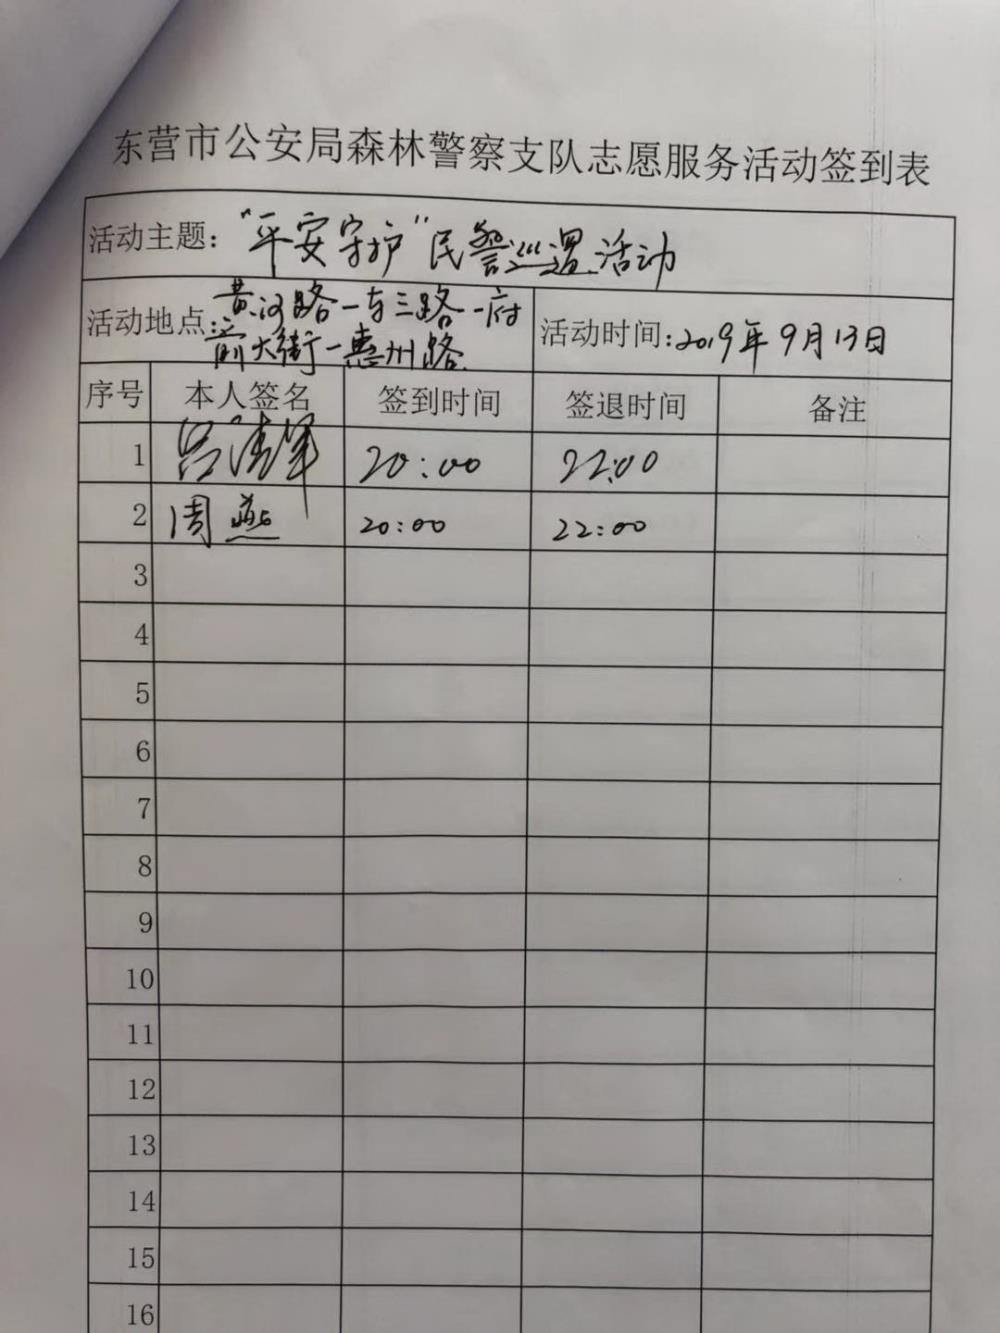 东营市公安局森林警察支队志愿服务活动签到表
活动主题：“平安守护”民警巡逻活动
活动地点：黄河路一东三路一府
前大街一惠州路
活动时间：2019年9月13日
序号 本人签名 签到时间 签退时间 备注
1 吕清军 20:00 22:00
2 周燕 20:00 22:00
3
4
5
6
7
8
9
10
11
12
13
14
15
16